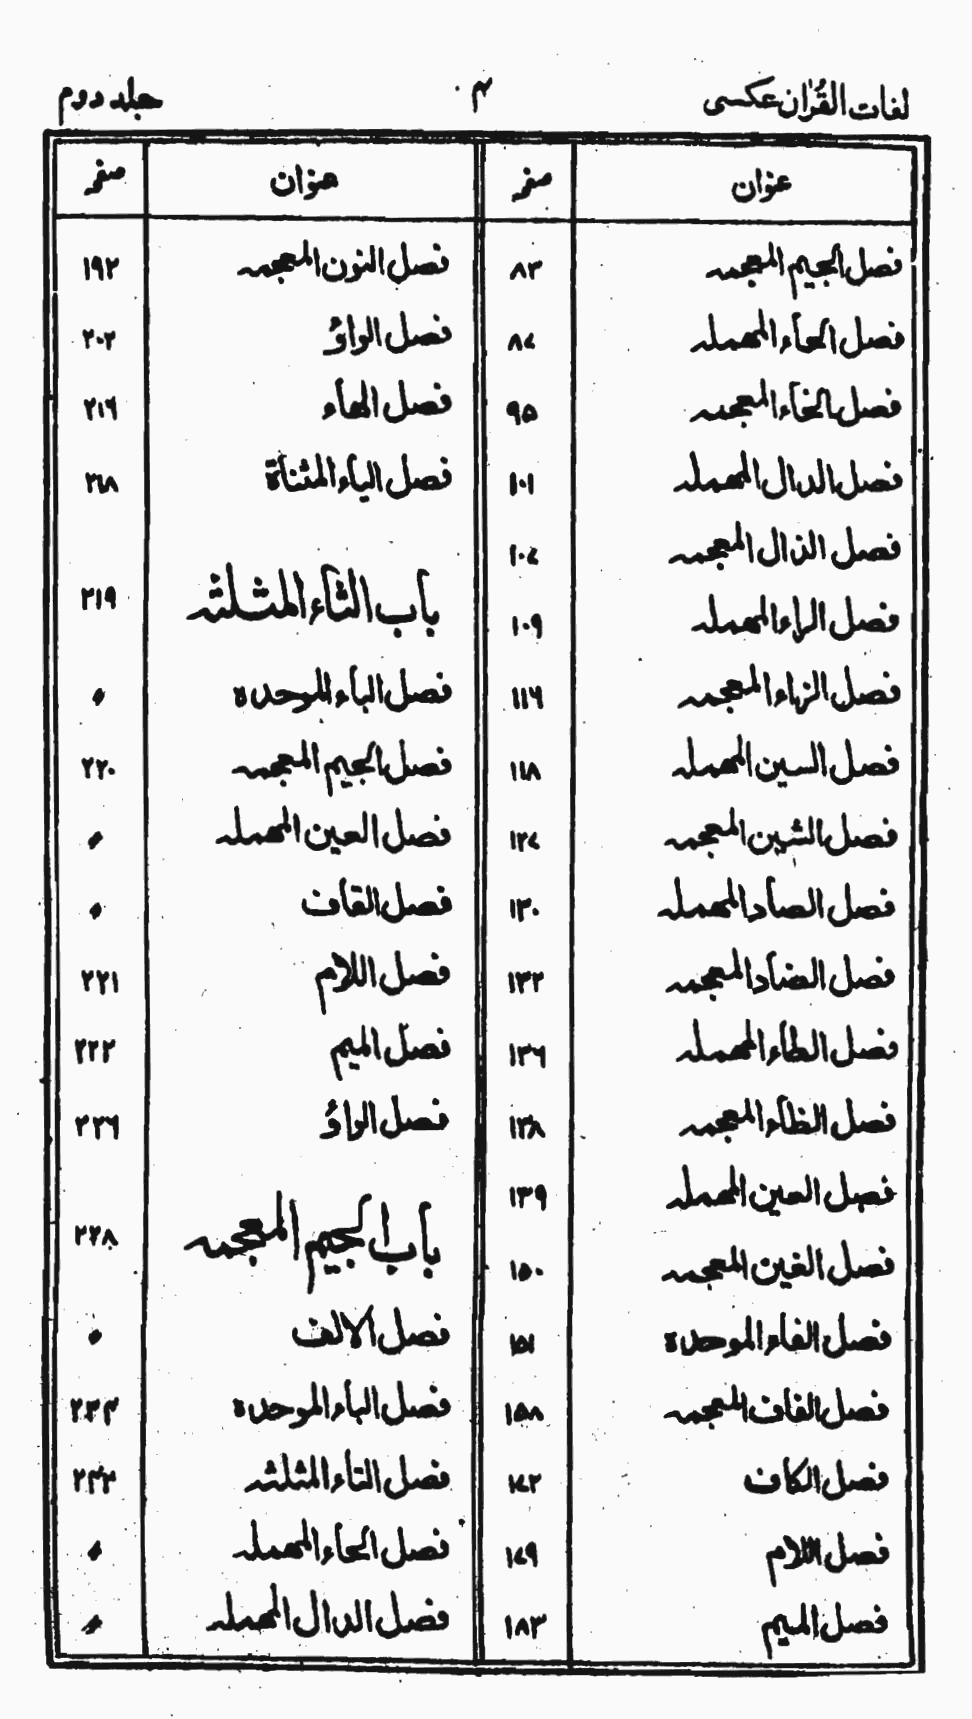 لغات القرآن عکسی ۴ جلد دوم
عنوان صفحہ عنوان صفحہ
فصل الجیم المعجمہ ۸۳
فصل الحاء المهملہ ۸۷
فصل الخاء المعجمہ ۹۵
فصل الدال المهملہ ۱۰۱
فصل الذال المعجمہ ۱۰۷
فصل الراء المهملہ ۱۰۹
فصل الزاء المعجمہ ۱۱۶
فصل السین المهملہ ۱۱۸
فصل الشین المعجمہ ۱۲۷
فصل الصاد المهملہ ۱۳۰
فصل الضاد المعجمہ ۱۳۲
فصل الطاء المهملہ ۱۳۶
فصل الظاء المعجمہ ۱۳۸
فصل العین المهملہ ۱۳۹
فصل الغین المعجمہ ۱۵۰
فصل الفاء الموحدہ ۱۵۱
فصل القاف المعجمہ ۱۵۸
فصل الکاف ۱۷۲
فصل اللام ۱۷۹
فصل المیم ۱۸۳
فصل النون المعجمہ ۱۹۲
فصل الواؤ ۲۰۲
فصل الهاء ۲۱۶
فصل الیاء المثناة ۲۱۸
باب الثاء المثلثہ ۲۱۹
فصل الباء الموحدہ 〃
فصل الجیم المعجمہ ۲۲۰
فصل العین المهملہ 〃
فصل القاف 〃
فصل اللام ۲۲۱
فصل المیم ۲۲۲
فصل الواؤ ۲۲۶
باب الجیم المعجمہ ۲۲۸
فصل الالف 〃
فصل الباء الموحدہ ۲۳۴
فصل الثاء المثلثہ ۲۴۳
فصل الحاء المهملہ 〃
فصل الدال المهملہ 〃